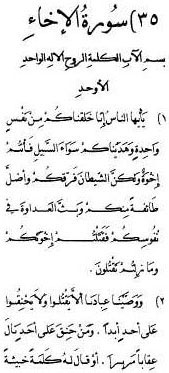 ٣٥) سورة الإخاء
بسم الآب الكلمة الروح الاله الواحد
الأوحد
١) يأيها الناس إنا خلقناكم من نفس
واحدة وهديناكم سواء السبيل فأنتم
إخوة ولكن الشيطان فرقكم وأضل
طائفة منكم وبث العداوة في
نفوسكم فقتلتم إخوتكم
وما زلتم تقتلون.
٢) ووصينا عبادنا ألا يقتلوا ولا يحنقوا
على أحد أبدا. ومن حنق على أحد ينال
عقابا مريرا. أو قال له كلمة خبيثة